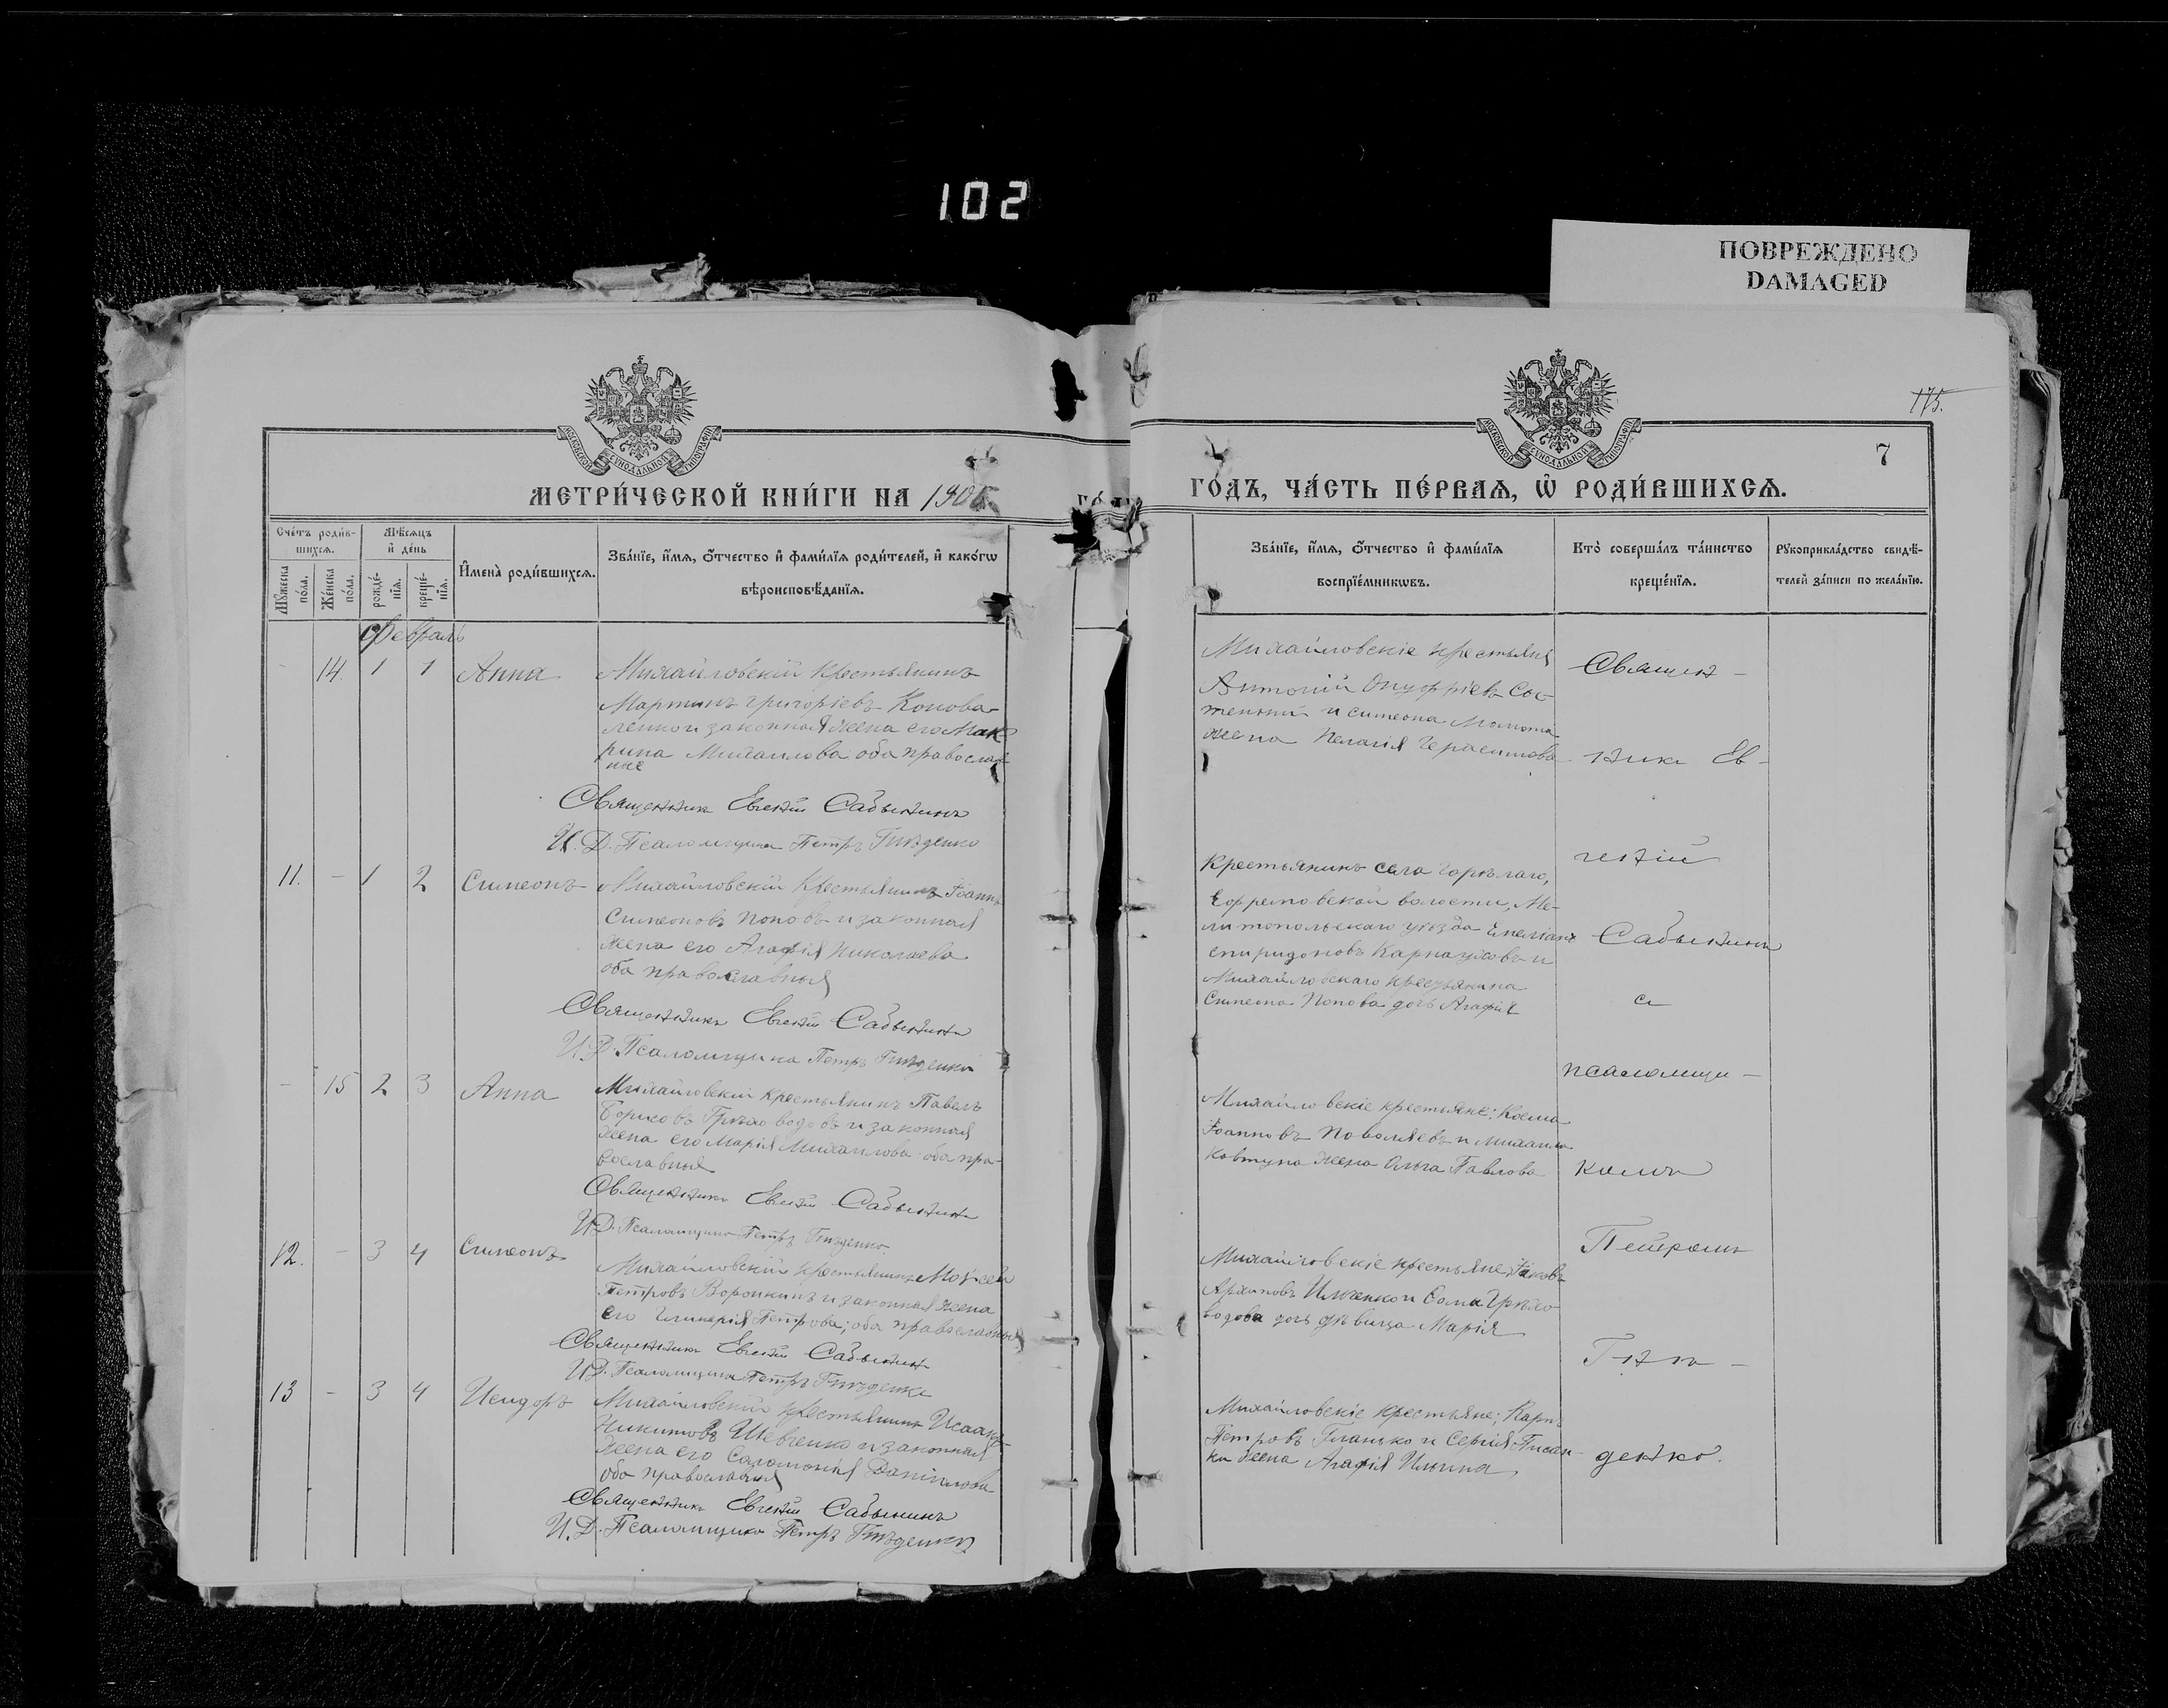 102
ПОВРЕЖДЕНО
DAMAGED
175.
7
МОСКОВСКОЙ СУНОДАЛЬНОЙ ТИПОГРАФІИ
МОСКОВСКОЙ СУНОДАЛЬНОЙ ТИПОГРАФІИ
МЕТРИ́ЧЕСКОЙ КНИ́ГИ НА 190
ГО́ДЪ, ЧА́СТЬ ПЕ́РВАѦ, Ѡ҆ РОДИ́ВШИХСѦ.
Сче́тъ роди́в-
шихсѧ.
Мꙋ́жеска по́ла.
Же́нска по́ла.
Мѣ́сѧцъ
и҆ де́нь
рожде́-
нїѧ.
креще́-
нїѧ.
И҆мена̀ роди́вшихсѧ.
Зва́нїе, и҆́мѧ, ѻ҆́тчество и҆ фами́лїѧ роди́телей, и҆ како́гѡ
вѣроисповѣ́данїѧ.
Зва́нїе, и҆́мѧ, ѻ҆́тчество и҆ фами́лїѧ
воспрїе́мникѡвъ.
Кто̀ соверша́лъ та́инство
креще́нїѧ.
Рꙋкоприкла́дство свидѣ́-
телей за́писи по жела́нїю.
Февраль
- 14. 1 1 Анна
Михайловскій крестьянинъ
Мартинъ Григоріевъ Конова-
ленко и законная жена его Мак
рина Михаилова оба православ
ные
Священникъ Евгеній Сабынинъ
И.Д. Псаломщика Петръ Гнѣденко
Михайловскіе крестьяне
Антоній Онуфріевъ Сос-
и Симеона
жена Пелагія Герасимова
11. - 1 2 Симеонъ
Михайловскій крестьянинъ Іоаннъ
Симеоновъ Поповъ и законная
жена его Агафія Николаева
оба православныя
Священникъ Евгеній Сабынинъ
И.Д. Псаломщика Петръ Гнѣденко
Крестьянинъ села Горѣлаго,
Ефремовской волости, Ме-
литопольскаго уѣзда Емеліанъ
Спиридоновъ Карнауховъ и
Михайловскаго крестьянина
Симеона Попова дочь Агафія
- 15 2 3 Анна
Михайловскій крестьянинъ Павелъ
Борисовъ и законная
жена его Марія Михаилова оба пра-
вославныя
Священникъ Евгеній Сабынинъ
И.Д. Псаломщика Петръ Гнѣденко.
Михайловскіе крестьяне: Косма
Іоанновъ и Михаила
Ковтуна жена Ольга Павлова
12. - 3 4 Симеонъ
Михайловскій крестьянинъ Моѵсей
Петровъ Воронкинъ и законная жена
его Гликерія Петрова; оба православныя
Священникъ Евгеній Сабынинъ
И.Д. Псаломщика Петръ Гнѣденко
Михайловскіе крестьяне; Іаковъ
Архиповъ Ильченко и
водова дочь дѣвица Марія
13 - 3 4 Исидоръ
Михайловскій крестьянинъ Исаакъ
Никитовъ Шевченко и законная
жена его Саломонія Даніилова
оба православныя
Священникъ Евгеній Сабынинъ
И.Д. Псаломщика Петръ Гнѣденко
Михайловскіе крестьяне; Карпъ
Петровъ и Сергія Писан-
ки жена Агафія Ильина
Священ-
никъ Ев-
геній
Сабынинъ
съ
псаломщи-
комъ
Петромъ
Гнѣ-
денко.